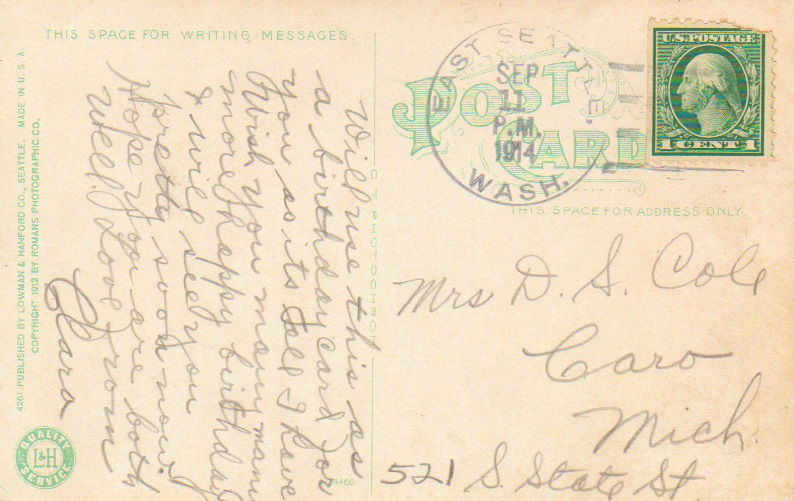 THIS SPACE FOR WRITING MESSAGES
Will use this as
a birthday card for
you as its all I have
Wish you many many
more happy birthdays
& will see you
pretty soon now.
Hope you are both
well. Love from
Clara
4261 PUBLISHED BY LOWMAN & HANFORD CO., SEATTLE. MADE IN U.S.A.
COPYRIGHT 1912 BY ROMANS PHOTOGRAPHIC CO.
QUALITY
L&H
SERVICE
POST
CARD
EAST SEATTLE.
SEP
11
P.M.
1914
WASH.
U.S. POSTAGE
1 CENT 1
THIS SPACE FOR ADDRESS ONLY.
Mrs D. S. Cole
Caro
Mich.
521 S. State St